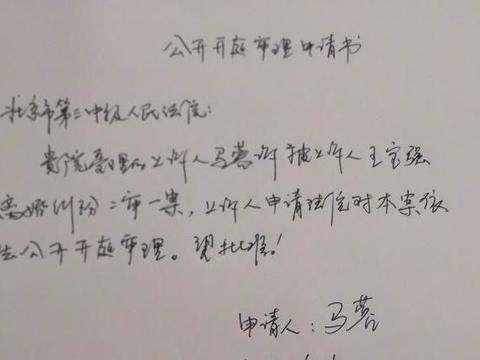 公开开庭审理申请书
北京市第三中级人民法院：
贵院受理的上诉人马蓉诉被上诉人王宝强
离婚纠纷二审一案，上诉人申请法院对本案依
法公开开庭审理。望批准！
申请人：马蓉